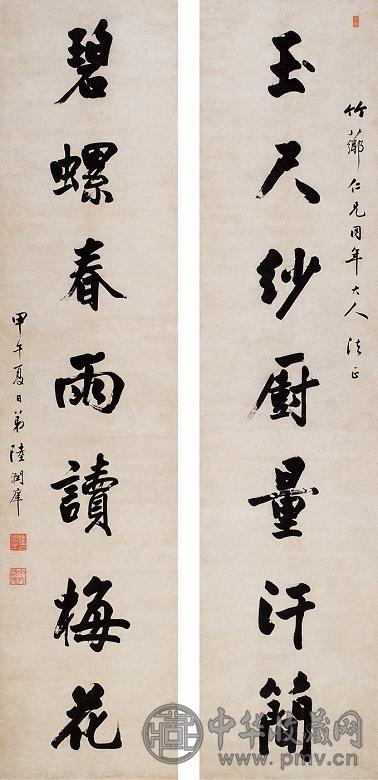 竹薌仁兄同年大人法正
玉尺紗廚量汗簡
碧螺春雨讀梅花
甲午夏日弟陸潤庠
中华收藏网
www.pmv.cn